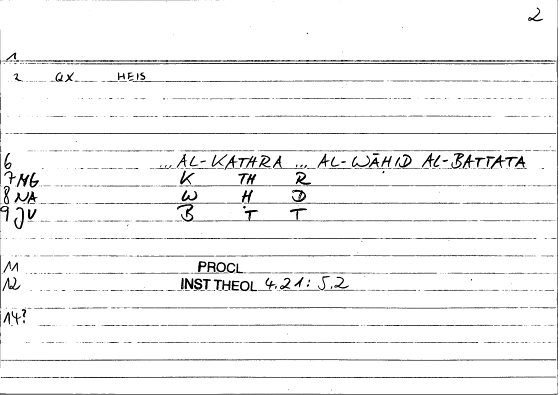 2
1
2 QX HEIS
6 ... AL-KATHRA ... AL-WĀḤID AL-BATTATA
7 NG K TH R
8 NA W Ḥ D
9 JV B T T
11 PROCL
12 INST THEOL 4.21: 5.2
14?